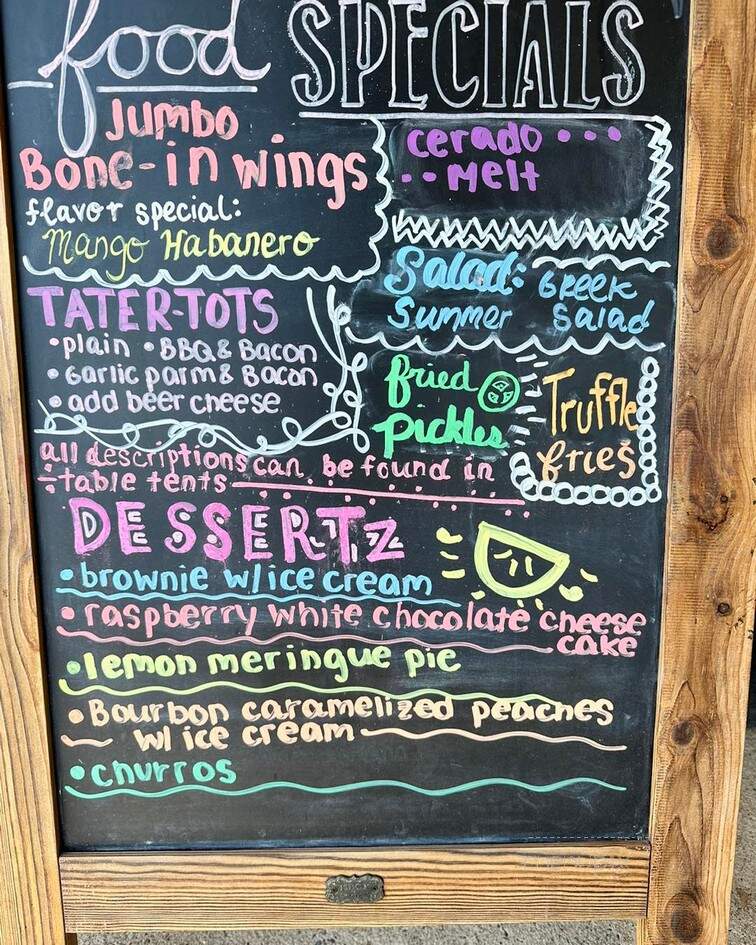 food SPECIALS
Jumbo
Bone-in wings
flavor special:
Mango Habanero
cerado...
..Melt
Salad: Greek
Summer Salad
TATER-TOTS
•plain •BBQ & Bacon
•Garlic parm & Bacon
•add beer cheese
fried
pickles
Truffle
fries
all descriptions can be found in
table tents
DESSERTZ
•brownie w/ice cream
•raspberry white chocolate cheese
cake
•lemon meringue pie
•Bourbon caramelized peaches
w/ ice cream
•churros